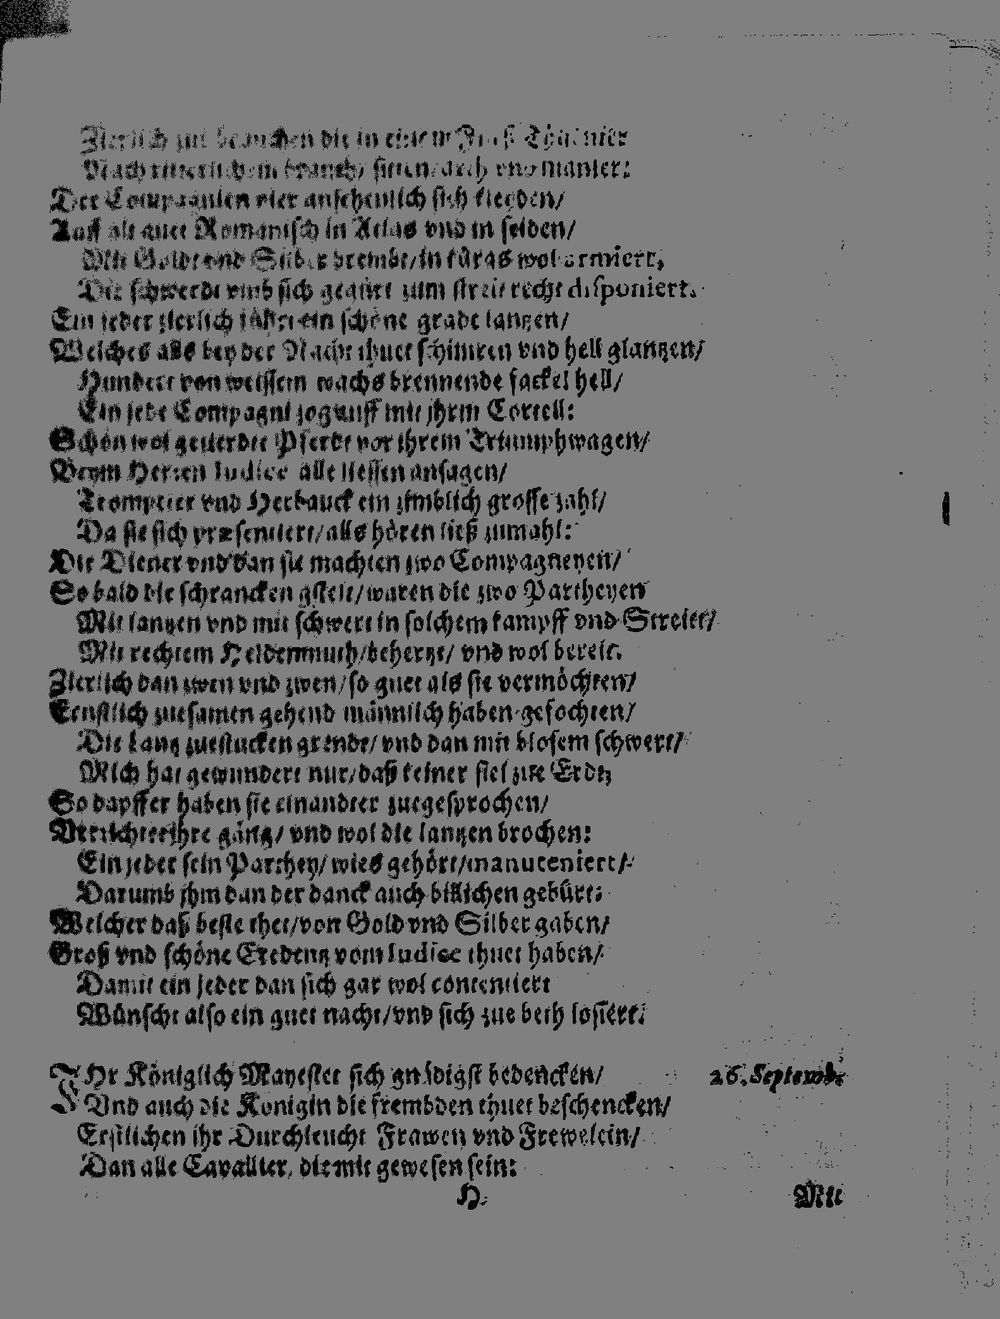 Zierlich zue brauchen die in einem Frey Thurnier
Nach ritterlichem brauch/ sitten/ auch vnd manier:
Der Compagnien vier ansehenlich sich kleyden/
Auff alt guet Romanisch in Atlas vnd in seiden/
Mit Goldt vnd Silber brembt/ in küras wol armiert,
Die schwerdt vmb sich gegürt zum streit recht disponiert.
Ein jeder zierlich führt ein schöne grade lantzen/
Welches alls bey der Nacht thuet schimren vnd hell glantzen/
Hundert von weissem wachs brennende fackel hell/
Ein jede Compagni zog auff mit jhrm Cortell:
Schön wol gezierdte Pferdt vor ihrem Triumphwagen/
Beym Herren Iudice alle liessen ansagen/
Trompeter vnd Herbauck ein zimblich grosse zahl/
Da sie sich præsentiert/ alls hören ließ zumahl:
Die Diener vnd dan sie machten zwo Compagneyen/
So bald die schrancken gstelt/ waren die zwo Partheyen
Mit lantzen vnd mit schwert in solchem kampff vnd Streitt/
Mit rechtem Heldenmuth/ behertzt/ vnd wol bereit.
Zierlich dan zwen vnd zwen/ so guet als sie vermöchten/
Ernstlich zuesamen gehend männlich haben gefochten/
Die Lantz zuestucken grendt/ vnd dan mit blosem schwert/
Mich hat gewundert nur/ daß keiner fiel zue Erdt;
So dapffer haben sie einandter zuegesprochen/
Verrichtet ihre gäng/ vnd wol die lantzen brochen:
Ein jeder sein Parthey/ wies gehört/ manuteniert/
Darumb jhm dan der danck auch billichen gebürt:
Welcher daß beste thet/ von Gold vnd Silber gaben/
Groß vnd schöne Credentz vom Iudice thuet haben/
Damit ein jeder dan sich gar wol contentiert
Wünscht also ein guet nacht/ vnd sich zue beth losiert:
IHr Königlich Mayestet sich gnädigst bedencken/
26. Septemb:
Vnd auch die Königin die frembden thuet beschencken/
Erstlichen ihr Durchleucht Frawen vnd Frewelein/
Dan alle Cavallier, die mit gewesen sein:
H
Mit